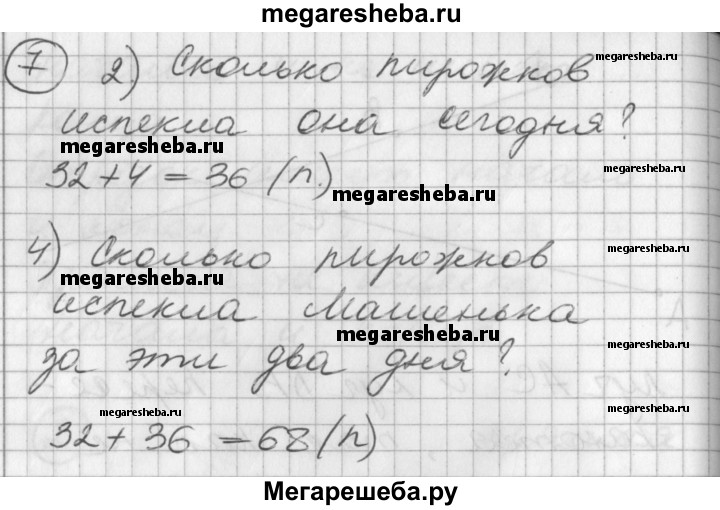 megaresheba.ru
7 2) Сколько пирожков
megaresheba.ru
испекла она сегодня?
megaresheba.ru
32 + 4 = 36 (п.)
megaresheba.ru
4) Сколько пирожков
megaresheba.ru
megaresheba.ru
испекла Машенька
megaresheba.ru
megaresheba.ru
за эти два дня?
megaresheba.ru
megaresheba.ru
32 + 36 = 68 (п)
Мегарешеба.ру